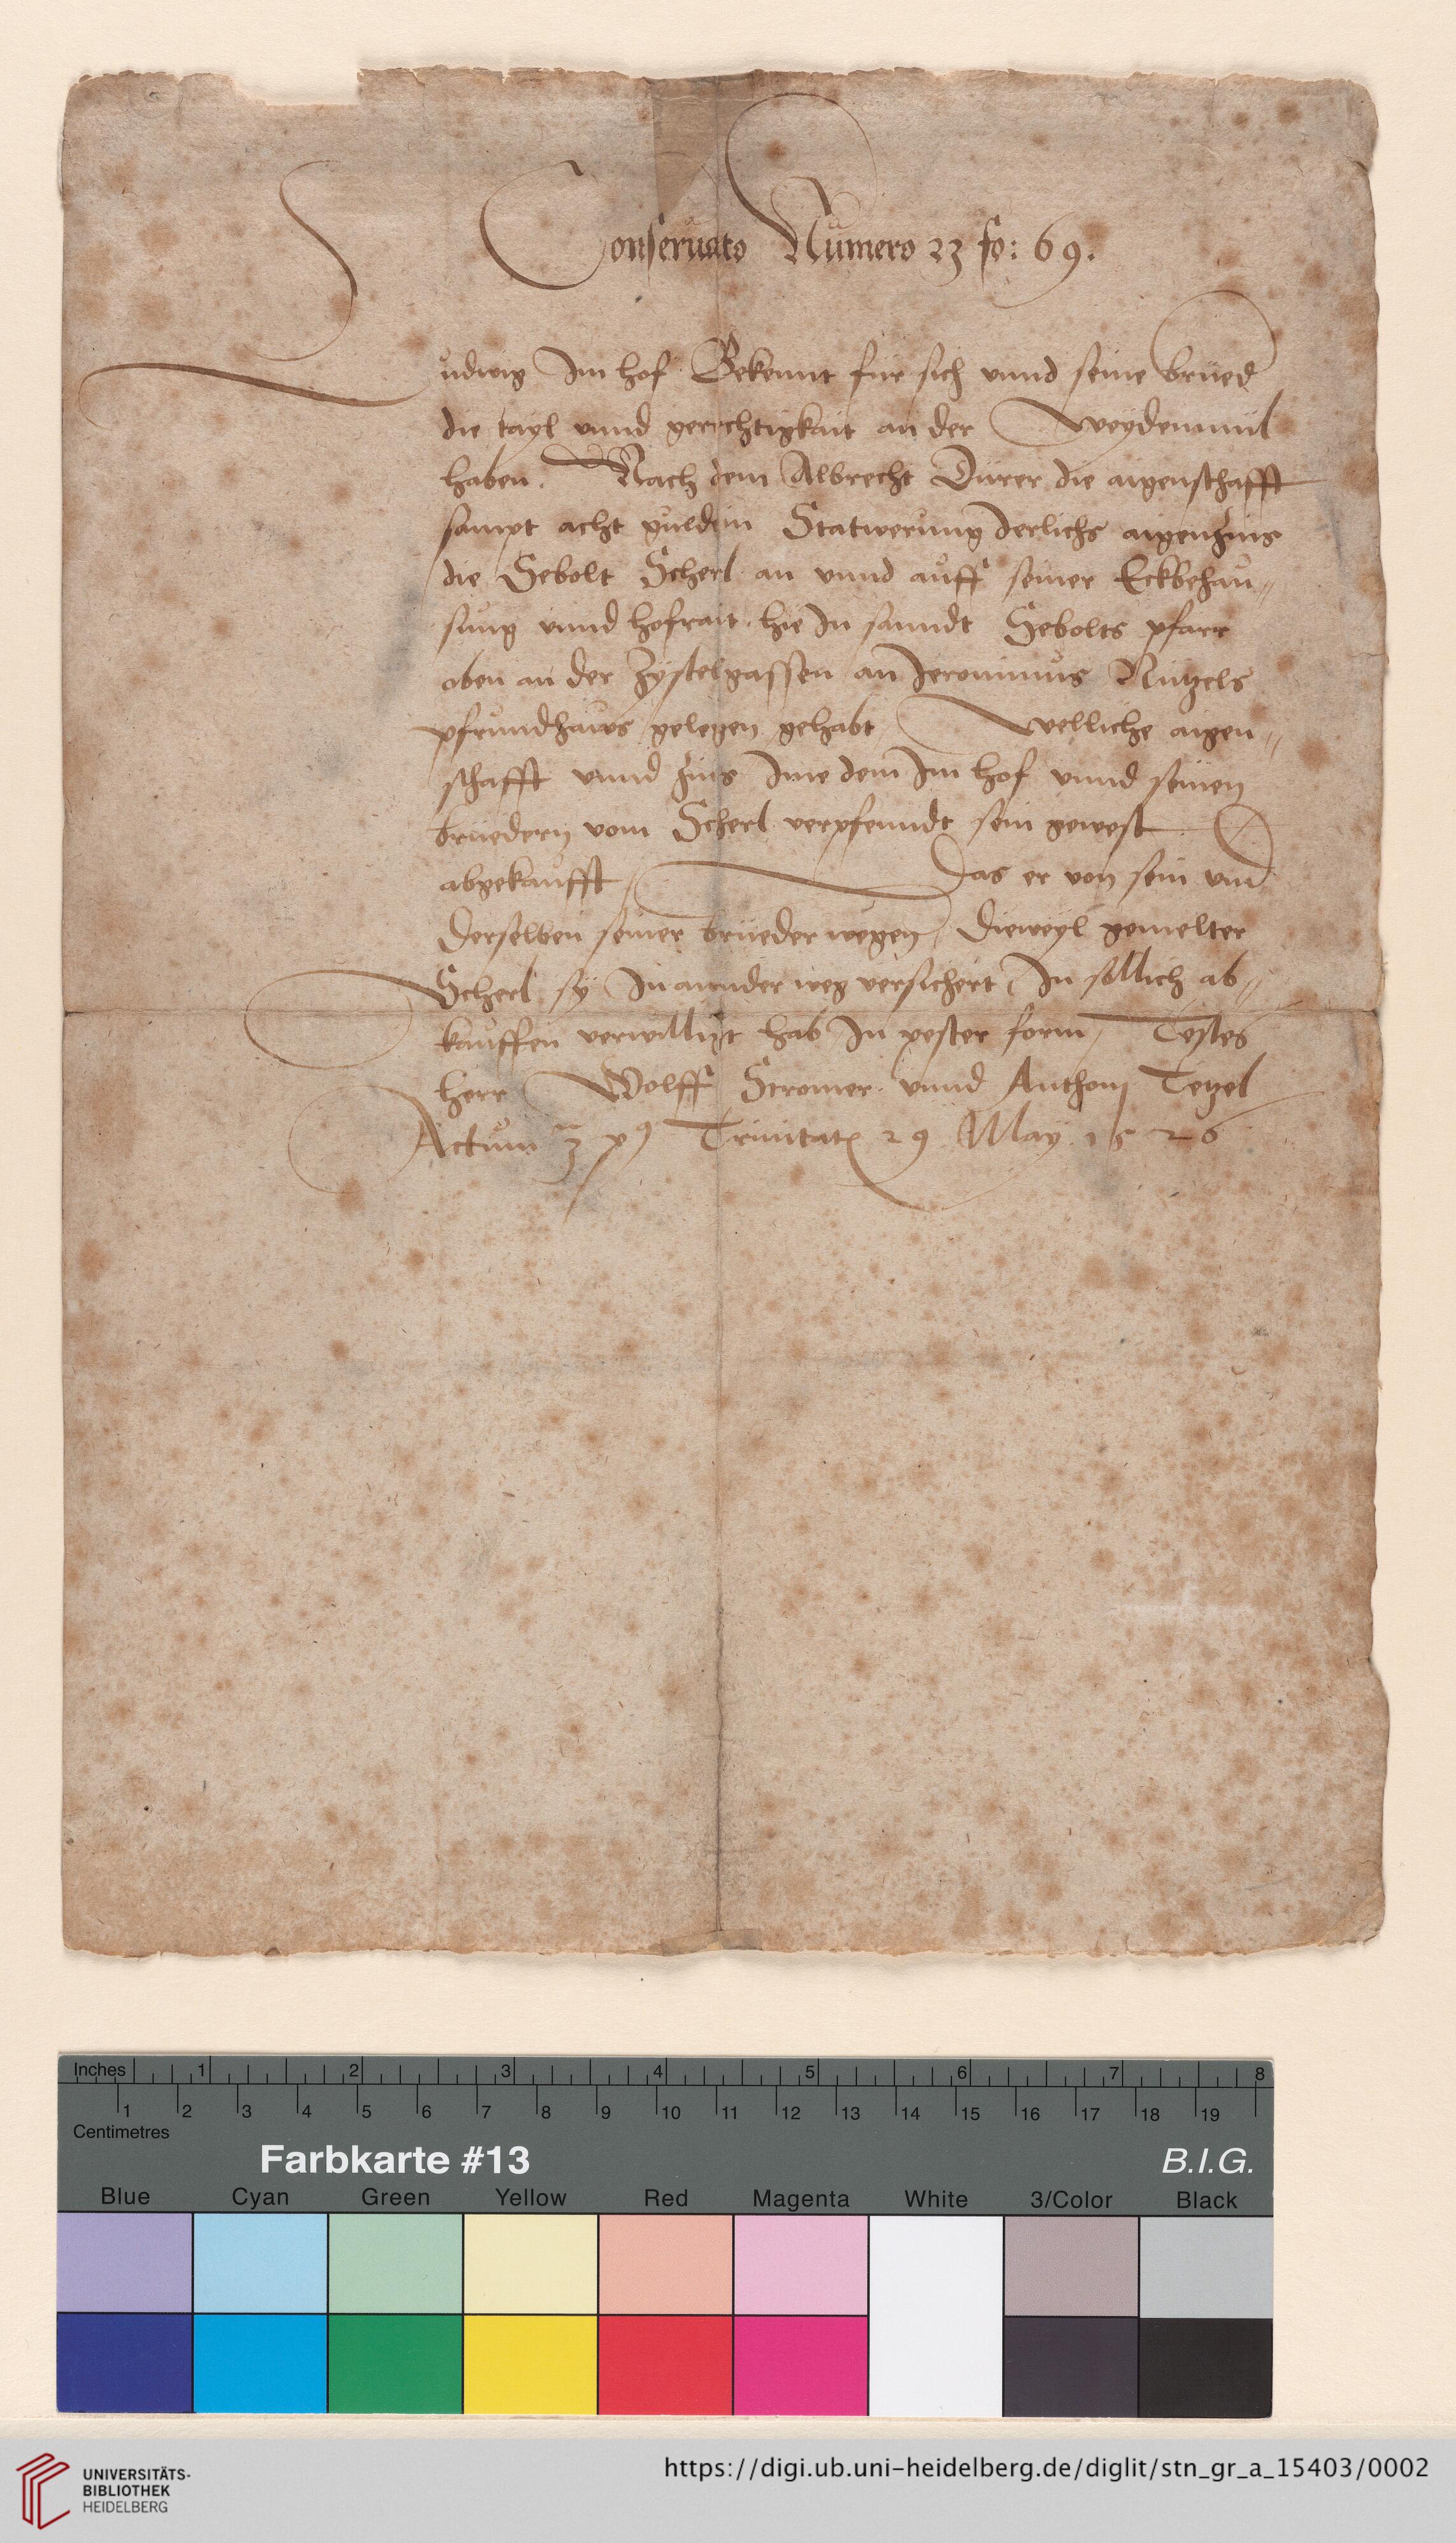 Conseruato Numero 23 fo: 69.
Ludwig Im hof Bekennt für sich vnnd seine brüed
die tayl vnnd gerechtigkait an der Weydenmül
haben. Nach dem Albrecht Dürer die aigenschafft
sampt acht guldein Statwerung Jerlichs aigenzins
die Sebolt Scherl an vnnd auff seiner Eckbehau„
sung vnnd hofrait hie In sanndt Sebolts pfarr
oben an der Zystelgassen an Jeronimus Nützels
pfrundhaws gelegen gehabt Welliche aigen„
schafft vnnd zins Ime dem Im hof vnnd seinen
bruedern vom Scherl verpfenndt sein gewest
abgekaufft Das er von sein vnd
derselben seiner brüeder wegen, Dieweyl gemelter
Scherl sy In annder weg versichert, In sollich ab„
kauffen verwilligt hab In pester form, Testes
herr Wolff Stromer vnnd Anthonj Tetzel
Actum 3 p9 Trinitat 29 May 1526
Inches 1 2 3 4 5 6 7 8
1 2 3 4 5 6 7 8 9 10 11 12 13 14 15 16 17 18 19
Centimetres
Farbkarte #13 B.I.G.
Blue Cyan Green Yellow Red Magenta White 3/Color Black
UNIVERSITÄTS-
BIBLIOTHEK
HEIDELBERG
https://digi.ub.uni-heidelberg.de/diglit/stn_gr_a_15403/0002